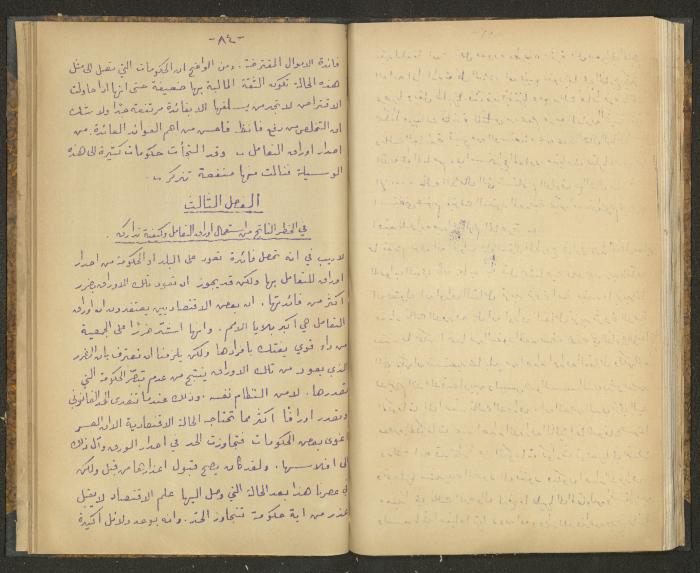 -٨٤-
فائدة الاموال المقترضة. ومن الواضح ان الحكومات التي تصل الى مثل
هذه الحالة تكون الثقة المالية بها ضعيفة حتى انها اذا حاولت
الاقتراض لا تجد من يسلفها الا بفائدة مرتفعة جدًا ولا شك
ان التخلص من دفع فائدة من اهم الفوائد العائدة من
اصدار اوراق التعامل وقد التجأت حكومات كثيرة الى هذه
الوسيلة فنالت منها منفعة تذكر
الفصل الثالث
في الخطر الناتج من استعمال اوراق التعامل وكيفية تداركه.
لا ريب في انه تحصل فائدة تعود على البلاد او الحكومة من اصدار
اوراق للتعامل بها ولكن قد يجوز ان تعود تلك الاوراق بضرر
اكثر من فائدتها. ان بعض الاقتصاديين يعتقدون ان اوراق
التعامل هي اكبر بلايا الامم. وانها اشد ضررًا على الجمعية
من داء قوي يفتك بافرادها ولكن يلزمنا ان نعترف بان الضرر
الذي يعود من تلك الاوراق ينتج من عدم تبصّر الحكومة التي
تصدرها. لا من النظام نفسه. وذلك عندما تتعدى الحد القانوني
وتصدر اوراقًا اكثر مما تحتاجه الحالة الاقتصادية الا ان العسر
اغوى بعض الحكومات فتجاوزت الحد في اصدار الورق وآل ذلك
الى افلاسها. ولقد كان يصح قبول اعذارها من قبل ولكن
في عصرنا هذا بعد الحالة التي وصل اليها علم الاقتصاد لا يقبل
عذر من اية حكومة تتجاوز الحد. وانه يوجد دلائل اكيدة